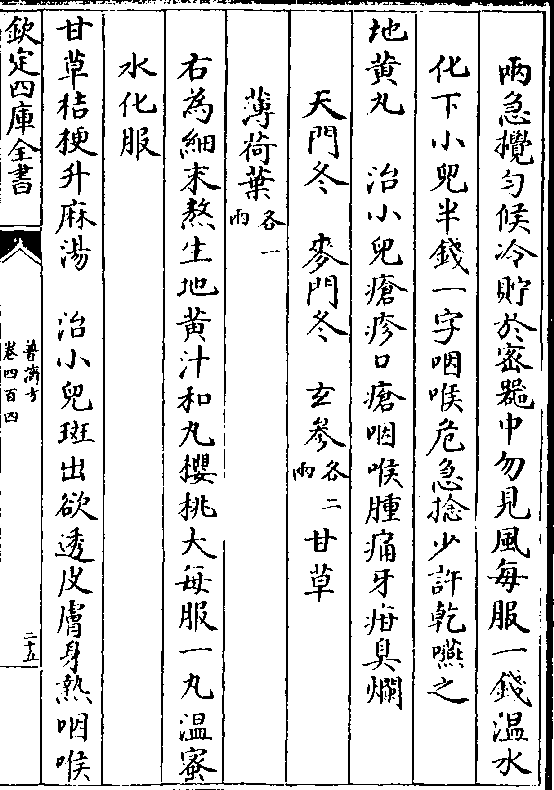 兩急攪勻候冷貯於密器中勿見風每服一錢温水
化下小兒半錢一字咽喉危急捻少許乾嚥之
地黄丸　治小兒瘡疹口瘡咽喉腫痛牙疳臭爛
天門冬　麥門冬　玄參各二兩　甘草
薄荷葉各一兩
右為細末熬生地黄汁和丸櫻桃大每服一丸温蜜
水化服
甘草桔梗升麻湯　治小兒斑出欲透皮膚身熱咽喉
欽定四庫全書
普濟方
卷四百四
二十五